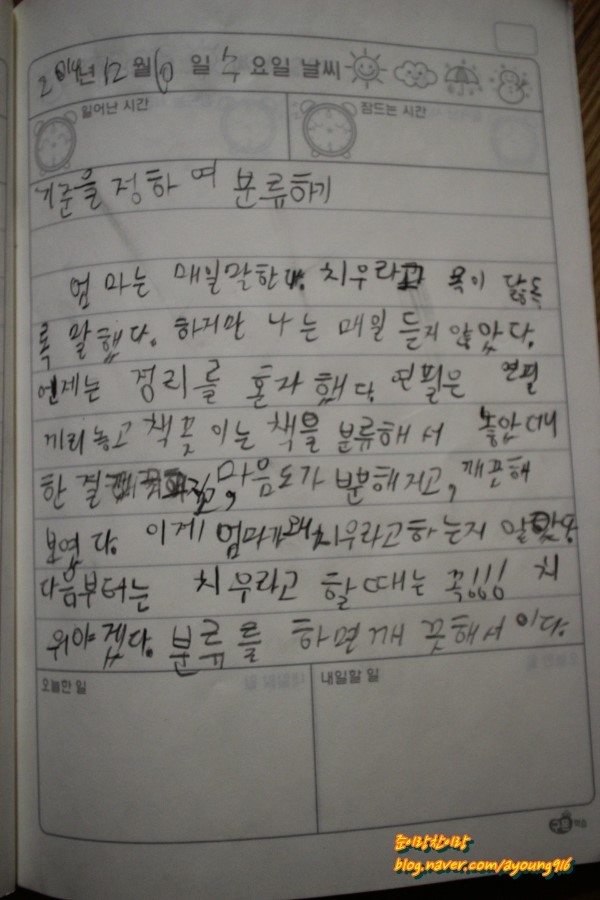 2014년 12월 10일 수요일 날씨
일어난 시간
잠드는 시간
기준을 정하여 분류하기
엄마는 매일말한다. 치우라고 욕이 닳독
록 말했다. 하지만 나는 매일 듣지 않았다.
언제는 정리를 혼자 했다. 연필은 연필
끼리 놓고 책꽂이는 책을 분류해서 놓았더니
한결 마음도가 분해지고, 깨끈해
보였다. 이게 엄마가왜치우라고하는지 알았
다음부터는 치우라고 할때는 꼭!!! 치
워야겠다. 분류를 하면깨끗해서이다.
오늘한 일
내일할 일
준이랑찬이랑
blog.naver.com/ayoung916